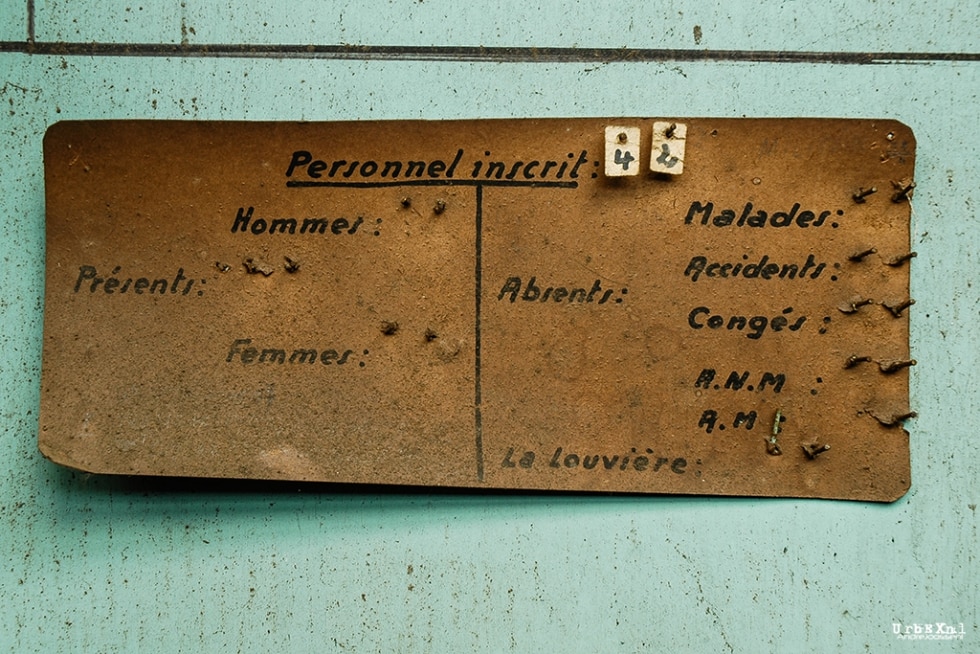 Personnel inscrit: 4 2
Hommes:
Présents:
Femmes:
Malades:
Accidents:
Absents:
Congés:
A.N.M :
A.M :
La Louvière:
UrbEXnl